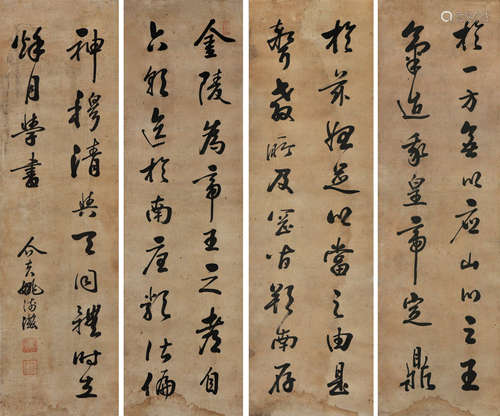 於一方無以應山川之王
氣迨我皇帝定鼎
於茲始足以當之由是
聲教所及罔間朔南存
金陵為帝王之州自
六朝迄於南唐類皆偏
神穆清與天同體時在
月學書
姚